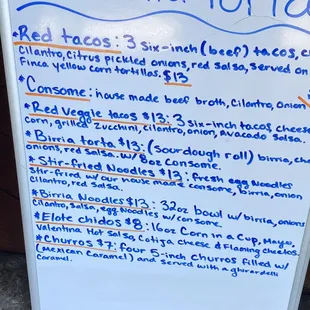 *Red tacos: 3 six-inch (beef) tacos,
Cilantro, Citrus pickled onions, red salsa, served on
Finca yellow corn tortillas. $13
*Consome: house made beef broth, Cilantro, onion
*Red veggie tacos $13: 3 six-inch tacos, cheese
Corn, grilled zucchini, cilantro, onion, avocado salsa.
*Birria torta $13: (sourdough roll) birria, che
onions, red salsa. w/ 8oz Consome.
*Stir-fried Noodles $13: fresh egg Noodles
Stir-fried w/ our house made consome, birria, onion
Cilantro, red salsa.
*Birria Noodles $13: 32oz bowl w/ birria, onions
Cilantro, salsa, egg Noodles w/ consome.
*Elote chidos $8: 16oz Corn in a Cup, Mayo,
Valentina Hot Salsa, Cotija Cheese & Flaming Cheetos.
*Churros $7: four 5-inch Churros filled w/
(Mexican Caramel) and served with a ghirardelli
Caramel.